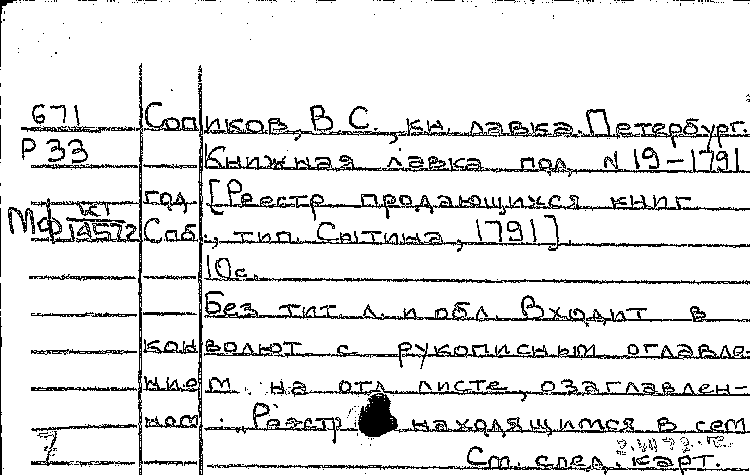 671 Сопиков, В С., кн. лавка. Петербург.
Р 33 Книжная лавка под N 19-1791
год [Реестр продающихся книг
МФ К1/14572 Спб., тип. Сытина, 1791].
10с.
Без тит л. и обл. Входит в
конволют с рукописным оглавле-
нием на отд листе, озаглавлен-
ном: „Реестр находящимся в сем
7 См. след. карт.